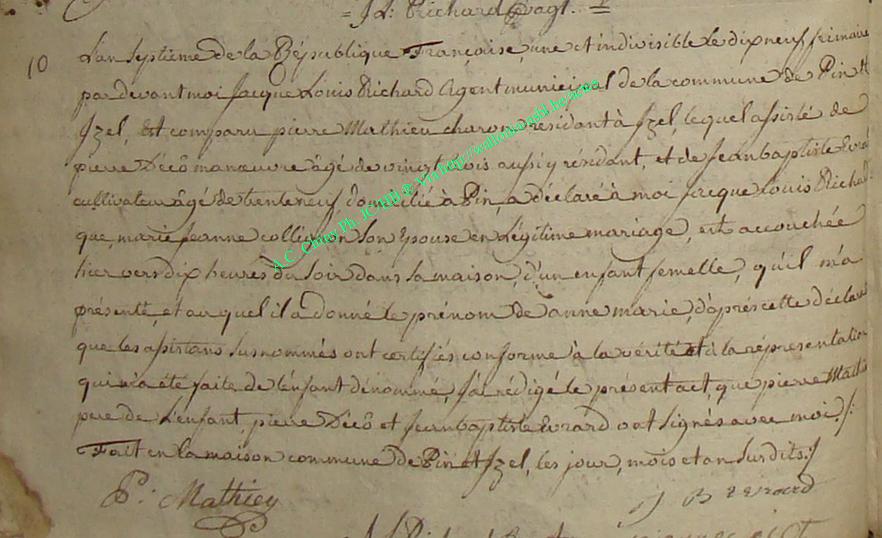 = J. L. Richard agt. =
10 L'an septieme de la République Française, une et indivisible le dix neuf frimaire
pardevant moi Jacque Louis Richard Agent municipal de la commune de Pin et
Izel, Est comparu pierre Mathieu charon résidant à Izel, lequel assisté de
pierre Décô manœuvre âgé de vingt trois aussi y résidant, et de Jean baptiste Evrard
cultivateur âgé de trente neuf domicilié à Pin, a déclaré à moi Jacque Louis Richard
que marie jeanne collignon son épouse en légitime mariage, est accouchée
hier vers dix heures du soir dans sa maison, d'un enfant femelle, qu'il m'a
présenté, et auquel il a donné le prénom de anne marie, d'après cette déclaration
que les assistans susnommés ont certifiés conforme à la vérité et à la réprésentation
qui m'a été faite de l'enfant dénommé, j'ai rédigé le présent act, que pierre Mathieu
pere de l'enfant, pierre Décô et jean baptiste Evrard ont signés avec moi ./.
Fait en la maison commune de Pin et Izel, les jour, mois et an susdits ./
P: Mathieu J B Evrard
A.C. Chiny Ph. JCHB & Via http://wallonica.ghl.be